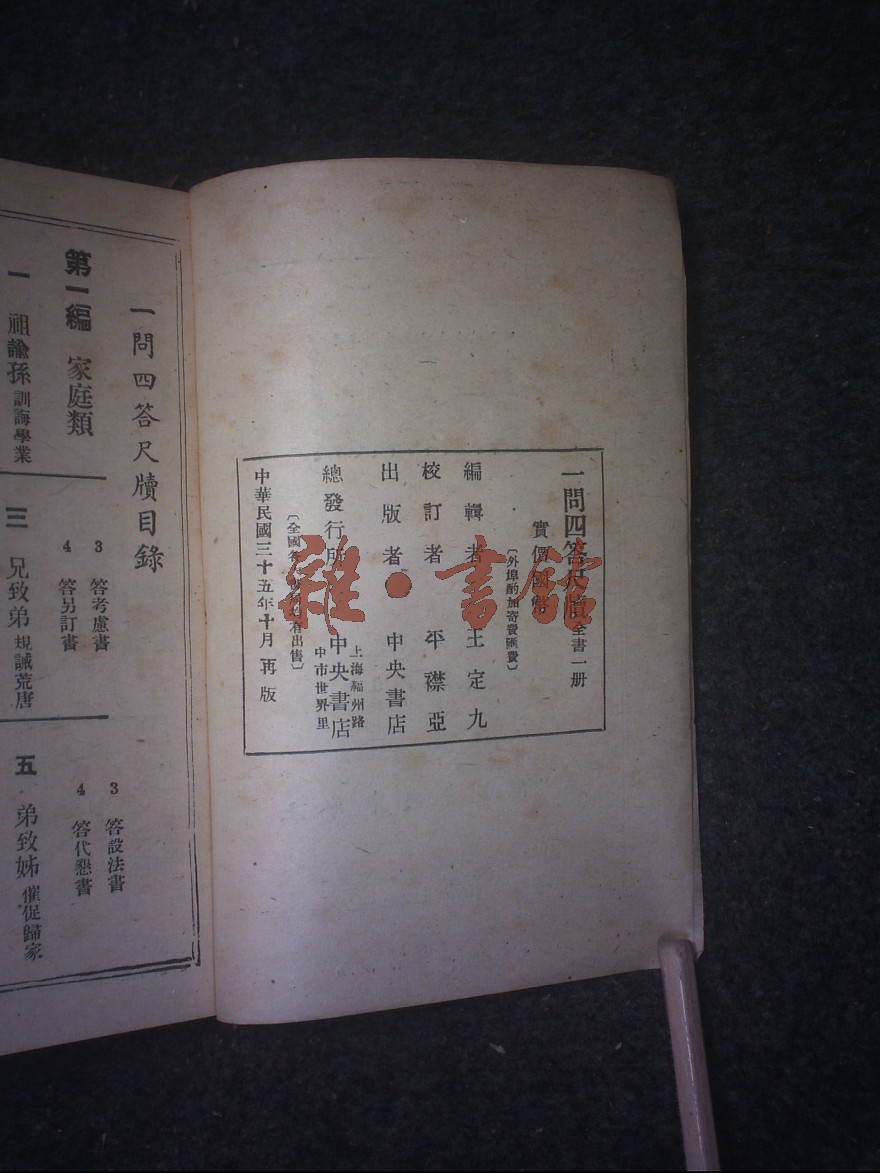 一問四答尺牘全書一册
實價國幣
〔外埠酌加寄費匯費〕
編輯者 王定九
校訂者 平襟亞
出版者 中央書店
上海福州路
總發行所 中央書店
中市世界里
〔全國各 有出售〕
中華民國三十五年十月再版
雜·書館
一問四答尺牘目錄
第一編 家庭類
一 祖諭孫 訓誨學業
3 答考慮書
4 答另訂書
三 兄致弟 規誡荒唐
3 答設法書
4 答代懇書
五 弟致姊 催促歸家